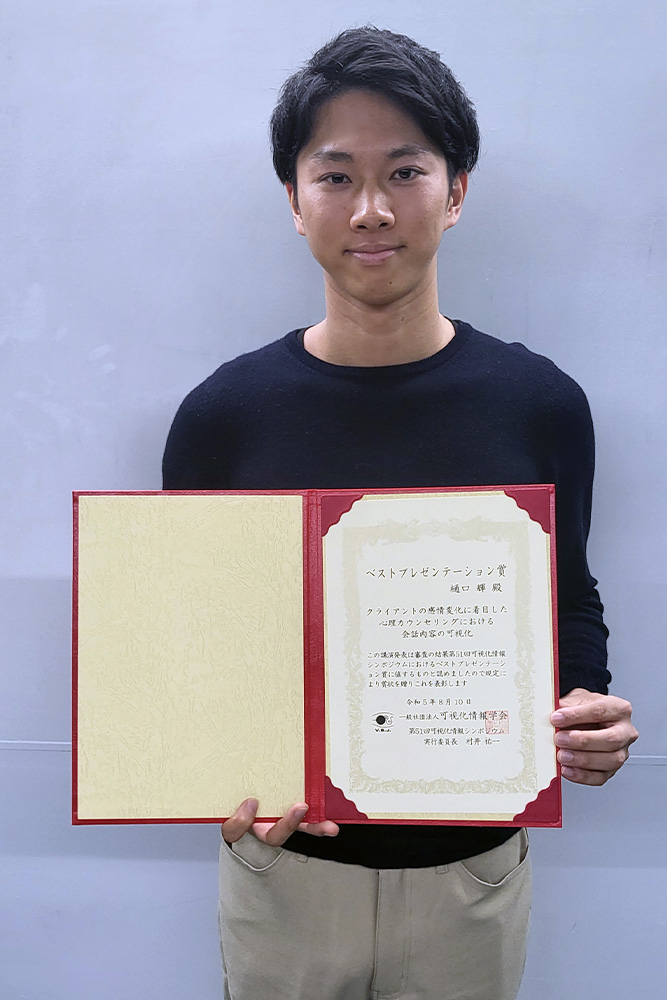 ベストプレゼンテーション賞
樋口 輝 殿
クライアントの感情変化に着目した
心理カウンセリングにおける
会話内容の可視化
この講演発表は審査の結果第51回可視化情報
シンポジウムにおけるベストプレゼンテーシ
ョン賞に値するものと認めましたので規定に
より賞状を贈りこれを表彰します
令和5年8月10日
一般社団法人可視化情報学会
第51回可視化情報シンポジウム
実行委員長 村井 祐一